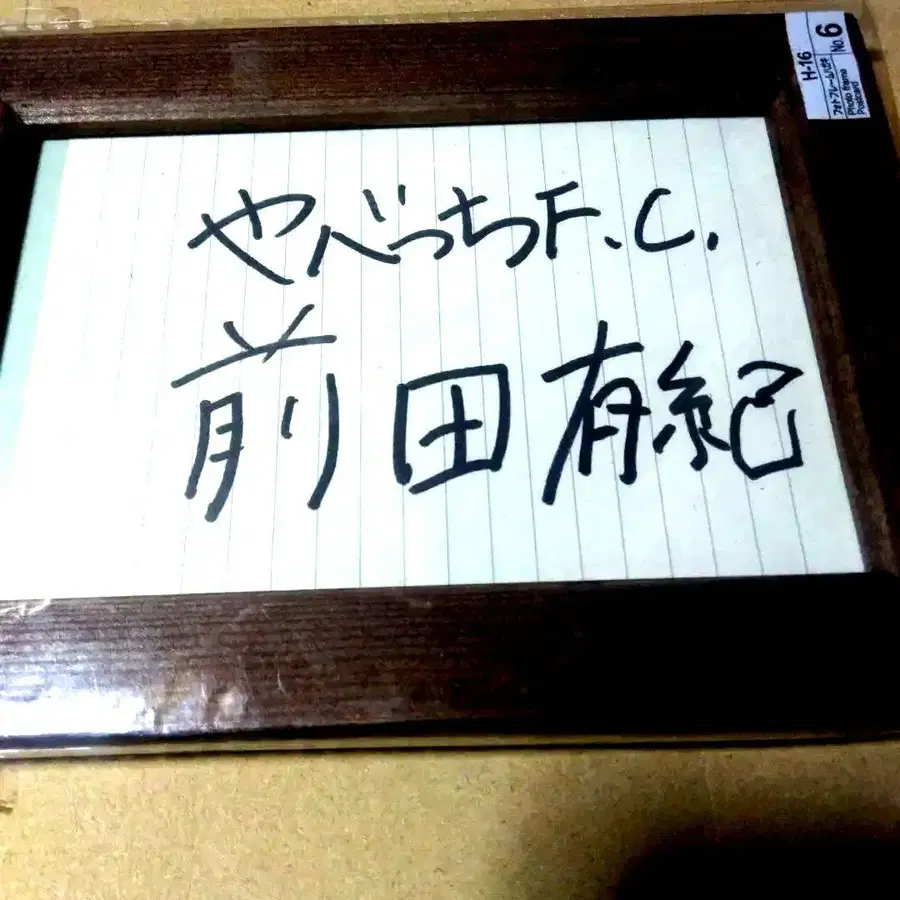 やべっちF.C.
前田有紀
H-16
フォトフレームハガキ
Photo frame
Postcard
No. 6